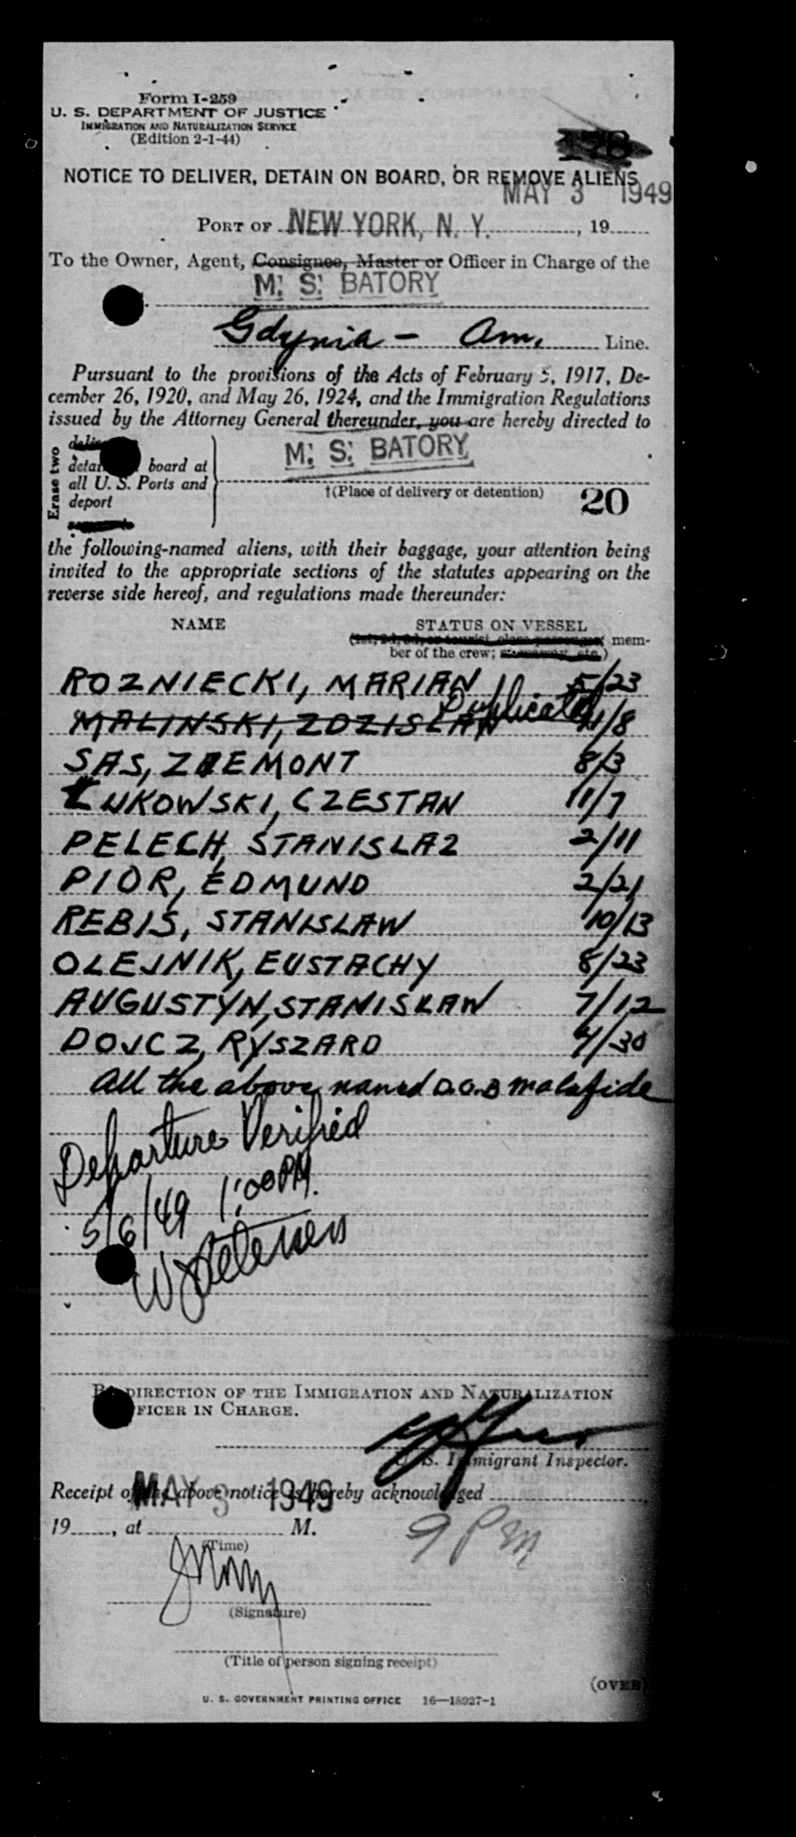 Form I-259
U. S. DEPARTMENT OF JUSTICE
IMMIGRATION AND NATURALIZATION SERVICE
(Edition 2-1-44)
NOTICE TO DELIVER, DETAIN ON BOARD, OR REMOVE ALIENS
MAY 3 1949
PORT OF NEW YORK, N. Y. , 19
To the Owner, Agent, Consignee, Master or Officer in Charge of the
M. S. BATORY
Gdynia - Am. Line.
Pursuant to the provisions of the Acts of February 5, 1917, De-
cember 26, 1920, and May 26, 1924, and the Immigration Regulations
issued by the Attorney General thereunder, you are hereby directed to
Erase two
board at
all U. S. Ports and
deport
M. S. BATORY
†(Place of delivery or detention)
20
the following-named aliens, with their baggage, your attention being
invited to the appropriate sections of the statutes appearing on the
reverse side hereof, and regulations made thereunder:
NAME STATUS ON VESSEL
mem-
ber of the crew;
ROZNIECKI, MARIAN 5/23
MALINSKI, ZDZISLAW Duplicated 11/8
SAS, 8/3
ŁUKOWSKI, CZESTAN 11/7
PELECH, STANISLAZ 2/11
PIOR, EDMUND 2/21
REBIS, STANISLAW 10/13
OLEJNIK, EUSTACHY 8/23
AUGUSTYN, STANISLAW 7/12
DOJCZ, RYSZARD 4/30
All the above named D.O.B malafide
Departure Verified
5/6/49 1:00 PM.
W Petersen
DIRECTION OF THE IMMIGRATION AND NATURALIZATION
OFFICER IN CHARGE.
U. S. Immigrant Inspector.
Receipt of the above notice is hereby acknowledged
MAY 3 1949
19 , at M.
9 Pm
(Time)
(Signature)
(Title of person signing receipt)
(OVER)
U. S. GOVERNMENT PRINTING OFFICE 16—18927-1